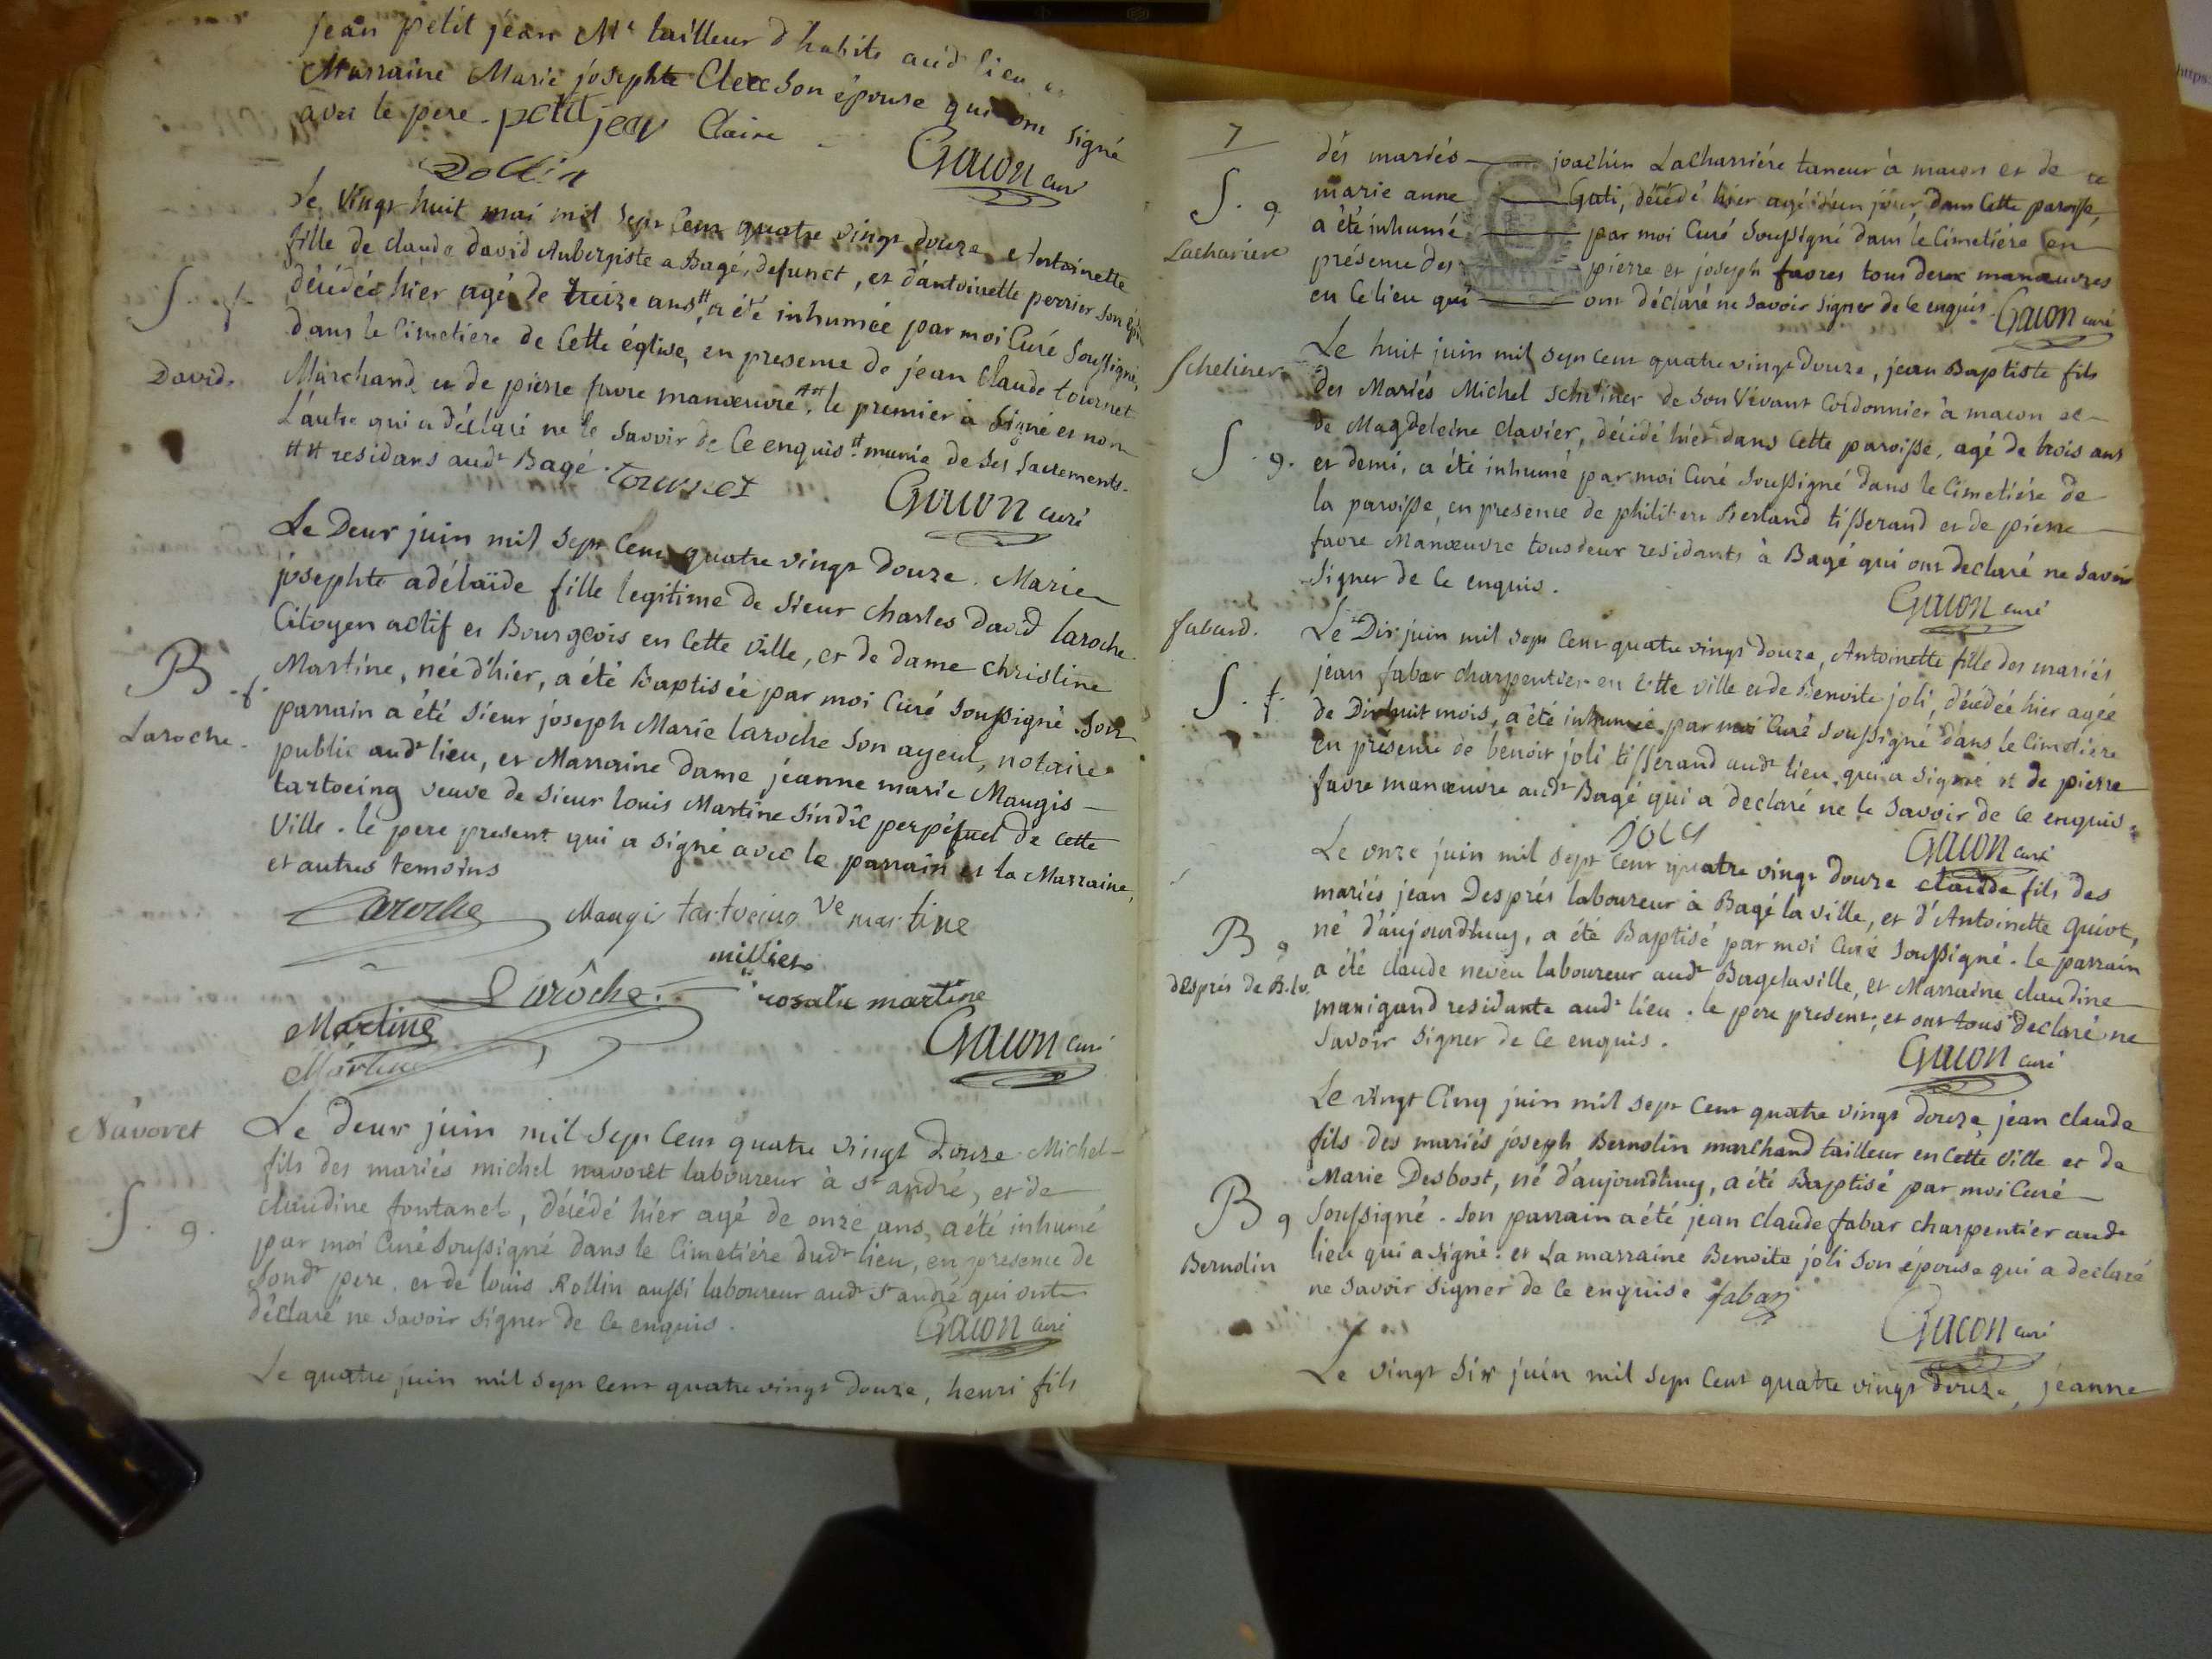 jean petit jean Mᵉ tailleur d'habits aud. lieu
Marraine Marie josephte Clerc son épouse qui ont signé
avec le pere. petit jean Claire
Rollin Gacon curé
Le vingt huit mai mil sept cent quatre vingt douze Antoinette
fille de claude david Aubergiste a Bagé, defunct, et d'antoinette perrier son
décédée hier agé de treize ans, # a été inhumée par moi Curé soussigné,
dans le Cimetiere de cette église, en presence de jean claude tournet
David.
Marchand et de pierre favre manœuvre, ## le premier à signé et non
L'autre qui a déclaré ne le savoir de ce enquis. # munie de ses sacrements.
## residans audᵗ Bagé. tournet
Gacon curé
Le Deux juin mil sept cent quatre vingt douze. Marie
josephte adélaïde fille legitime de sieur charles david laroche
Citoyen actif et Bourgeois en cette ville, et de dame christine
B. f.
Martine, née d'hier, a été Baptisée par moi Curé soussigné. Son
parrain a été sieur joseph Marie laroche son ayeul, notaire
Laroche.
public audᵗ lieu, et Marraine dame jeanne marie Maugis
tartoeing veuve de sieur louis Martine sindic perpétuel de cette
ville. le pere present qui a signé avec le parrain et la Marraine,
et autres temoins
Laroche Maugi tartoeing vᵉ martine
millier
Laroche. rosalie martine
Martine
Martine Gacon curé
Navoret
Le deux juin mil sept cent quatre vingt douze Michel
fils des mariés michel navoret laboureur à sᵗ andré, et de
claudine fontanel, décédé hier agé de onze ans, a été inhumé
S. g.
par moi Curé soussigné dans le Cimetiére dudᵗ lieu, en presence de
sondᵗ pere, et de louis Rollin aussi laboureur audᵗ sᵗ andré qui ont
déclaré ne savoir signer de ce enquis.
Gacon curé
Le quatre juin mil sept cent quatre vingt douze, henri fils
7
des mariés joachim Lacharriére taneur à macon et de
S. g.
marie anne Gati, décédé hier agé d'un jour, dans cette paroisse,
a été inhumé par moi Curé soussigné dans le Cimetiére en
Lachariere
présence des pierre et joseph favres tous deux manœuvres
en ce lieu qui ont déclaré ne savoir signer de ce enquis. Gacon curé
Scheliner
Le huit juin mil sept cent quatre vingt douze, jean Baptiste fils
des Mariés Michel scheliner de son vivant Cordonnier à macon et
de Magdeleine clavier, décédé hier dans cette paroisse, agé de trois ans
S. g.
et demi, a été inhumé par moi Curé soussigné dans le Cimetiére de
la paroisse, en presence de philibert Berland tisserand et de pierre
favre Manœuvre tous deux residants à Bagé qui ont declaré ne savoir
signer de ce enquis.
Gacon curé
fabard.
Le Dix juin mil sept cent quatre vingt douze, Antoinette fille des mariés
jean fabar charpentier en cette ville et de Benoite joli, décédée hier agée
S. f.
de Dix huit mois, a été inhumée par moi Curé soussigné dans le Cimetiére
en présence de benoit joli tisserand audᵗ lieu qui a signé et de pierre
favre manœuvre audᵗ Bagé qui a declaré ne le savoir de ce enquis.
joly Gacon curé
Le onze juin mil sept cent quatre vingt douze claude fils des
mariés jean Desprès laboureur à Bagé la ville, et d'Antoinette guiot,
B g
né d'aujourdhuy, a été Baptisé par moi Curé soussigné. le parrain
a été claude neveu laboureur audᵗ Bagelaville, et Marraine claudine
desprès de B.lv.
manigand residante audᵗ lieu. le pere present, et ont tous declaré ne
savoir signer de ce enquis.
Gacon curé
Le vingt cinq juin mil sept cent quatre vingt douze jean claude
fils des mariés joseph Bernolin marchand tailleur en cette ville et de
Marie Desbost, né d'aujourdhuy, a été Baptisé par moi Curé
B g
soussigné. son parrain a été jean claude fabar charpentier audᵗ
Bernolin
lieu qui a signé. et La marraine Benoite joli son épouse qui a declaré
ne savoir signer de ce enquise fabar
Gacon curé
Le vingt six juin mil sept cent quatre vingt douze, jeanne